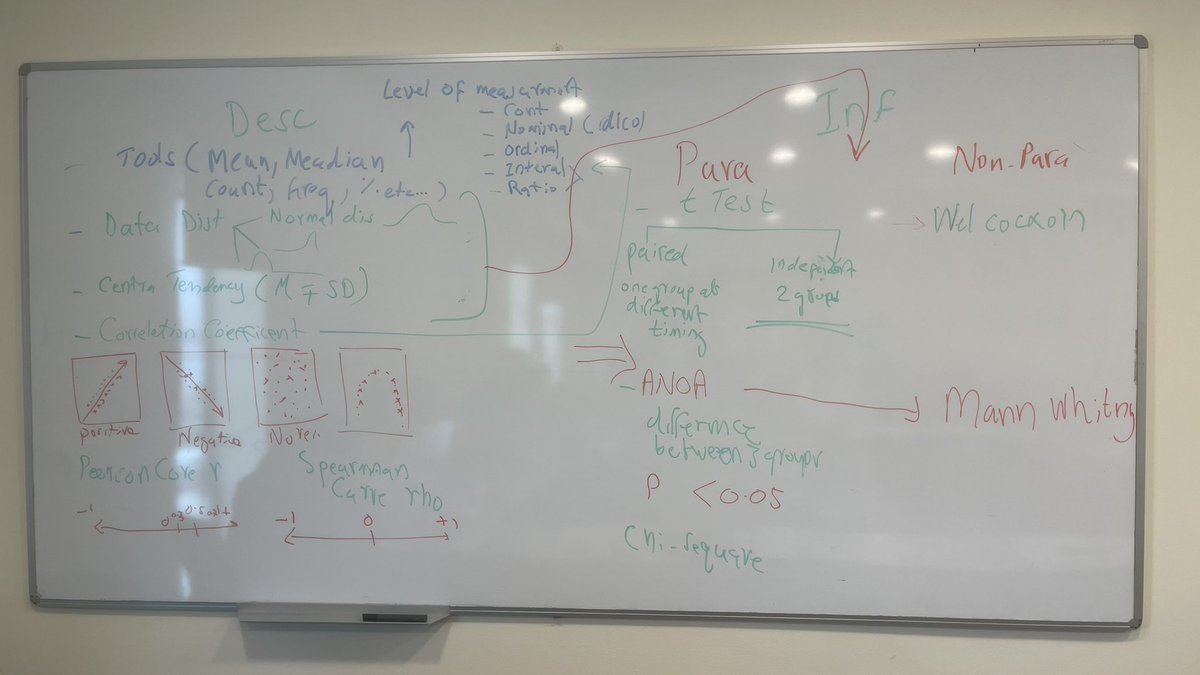 Desc
Level of measurment
- Cont
- Nominal (dico)
- ordinal
- Interal
- Ratio
- Tods (Mean, Meadian
Count, freq, %. etc...)
- Data Dist
Normal dis
- Centra Tendency (M ∓ SD)
- Correletion Coefficent
positive
Negative
Pearson Corre r
Spearman
Corre rho
-1
-1 0 +1
Inf
Para
- t Test
paired
one group at
different
timing
Independent
2 groups
- ANOA
differnce
between 3 groups
P < 0.05
Chi-sequare
Non-Para
Wel cocxoin
Mann Whitny